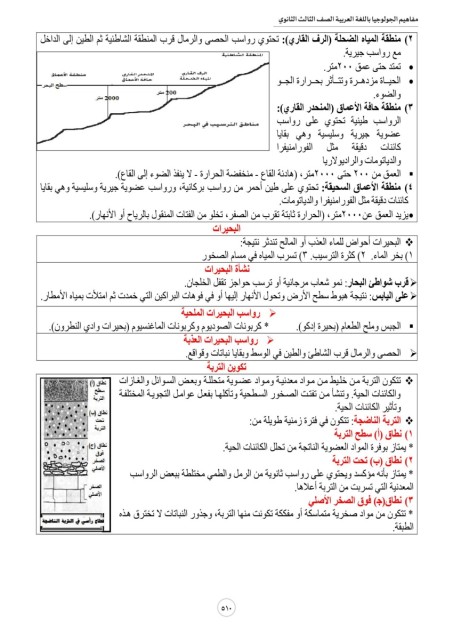 مفاهيم الجولوجيا باللغة العربية الصف الثالث الثانوي
٢) منطقة المياه الضحلة (الرف القاري): تحتوي رواسب الحصى والرمال قرب المنطقة الشاطئية ثم الطين إلى الداخل
مع رواسب جيرية.
تمتد حتى عمق ٢٠٠متر.
الحياة مزدهرة وتتأثر بحرارة الجو
والضوء.
٣) منطقة حافة الأعماق (المنحدر القاري):
الرواسب طينية تحتوي على رواسب
عضوية جيرية وسليسية وهي بقايا
كائنات دقيقة مثل الفورامنيفرا
والدياتومات والراديولاريا
المنطقة الشاطئية
الرف القاري
المياه الضحلة
المنحدر القاري
حافة الأعماق
منطقة الأعماق
سطح البحر
200 متر
2000 متر
مناطق الترسيب في البحر
العمق من ٢٠٠ حتى ٢٠٠٠متر، (هادئة القاع - منخفضة الحرارة - لا ينفذ الضوء إلى القاع).
٤) منطقة الأعماق السحيقة: تحتوي على طين أحمر من رواسب بركانية، ورواسب عضوية جيرية وسليسية وهي بقايا
كائنات دقيقة مثل الفورامنيفرا والدياتومات.
يزيد العمق عن٢٠٠٠متر، (الحرارة ثابتة تقرب من الصفر، تخلو من الفتات المنقول بالرياح أو الأنهار).
البحيرات
البحيرات أحواض للماء العذب أو المالح تندثر نتيجة:
١) بخر الماء. ٢) كثرة الترسيب. ٣) تسرب المياه في مسام الصخور
نشأة البحيرات
قرب شواطئ البحار: نمو شعاب مرجانية أو ترسب حواجز تقفل الخلجان.
على اليابس: نتيجة هبوط سطح الأرض وتحول الأنهار إليها أو في فوهات البراكين التي خمدت ثم امتلأت بمياه الأمطار.
رواسب البحيرات الملحية
الجبس وملح الطعام (بحيرة إدكو). * كربونات الصوديوم وكربونات الماغنسيوم (بحيرات وادي النطرون).
رواسب البحيرات العذبة
الحصى والرمال قرب الشاطئ والطين في الوسط وبقايا نباتات وقواقع.
تكوين التربة
تتكون التربة من خليط من مواد معدنية ومواد عضوية متحللة وبعض السوائل والغازات
والكائنات الحية. وتنشأ من تفتت الصخور السطحية وتآكلها بفعل عوامل التجوية المختلفة
وتأثير الكائنات الحية.
التربة الناضجة: تتكون في فترة زمنية طويلة من:
١) نطاق (أ) سطح التربة
* يمتاز بوفرة المواد العضوية الناتجة من تحلل الكائنات الحية.
٢) نطاق (ب) تحت التربة
* يمتاز بأنه مؤكسد ويحتوي على رواسب ثانوية من الرمل والطمي مختلطة ببعض الرواسب
المعدنية التي تسربت من التربة أعلاها.
٣) نطاق(ج) فوق الصخر الأصلي
* تتكون من مواد صخرية متماسكة أو مفككة تكونت منها التربة، وجذور النباتات لا تخترق هذه
الطبقة.
نطاق (أ)
سطح
التربة
نطاق (ب)
تحت
التربة
نطاق (ج)
فوق
الصخر
الأصلي
الصخر
الأصلي
قطاع رأسي في التربة الناضجة
٥١٠